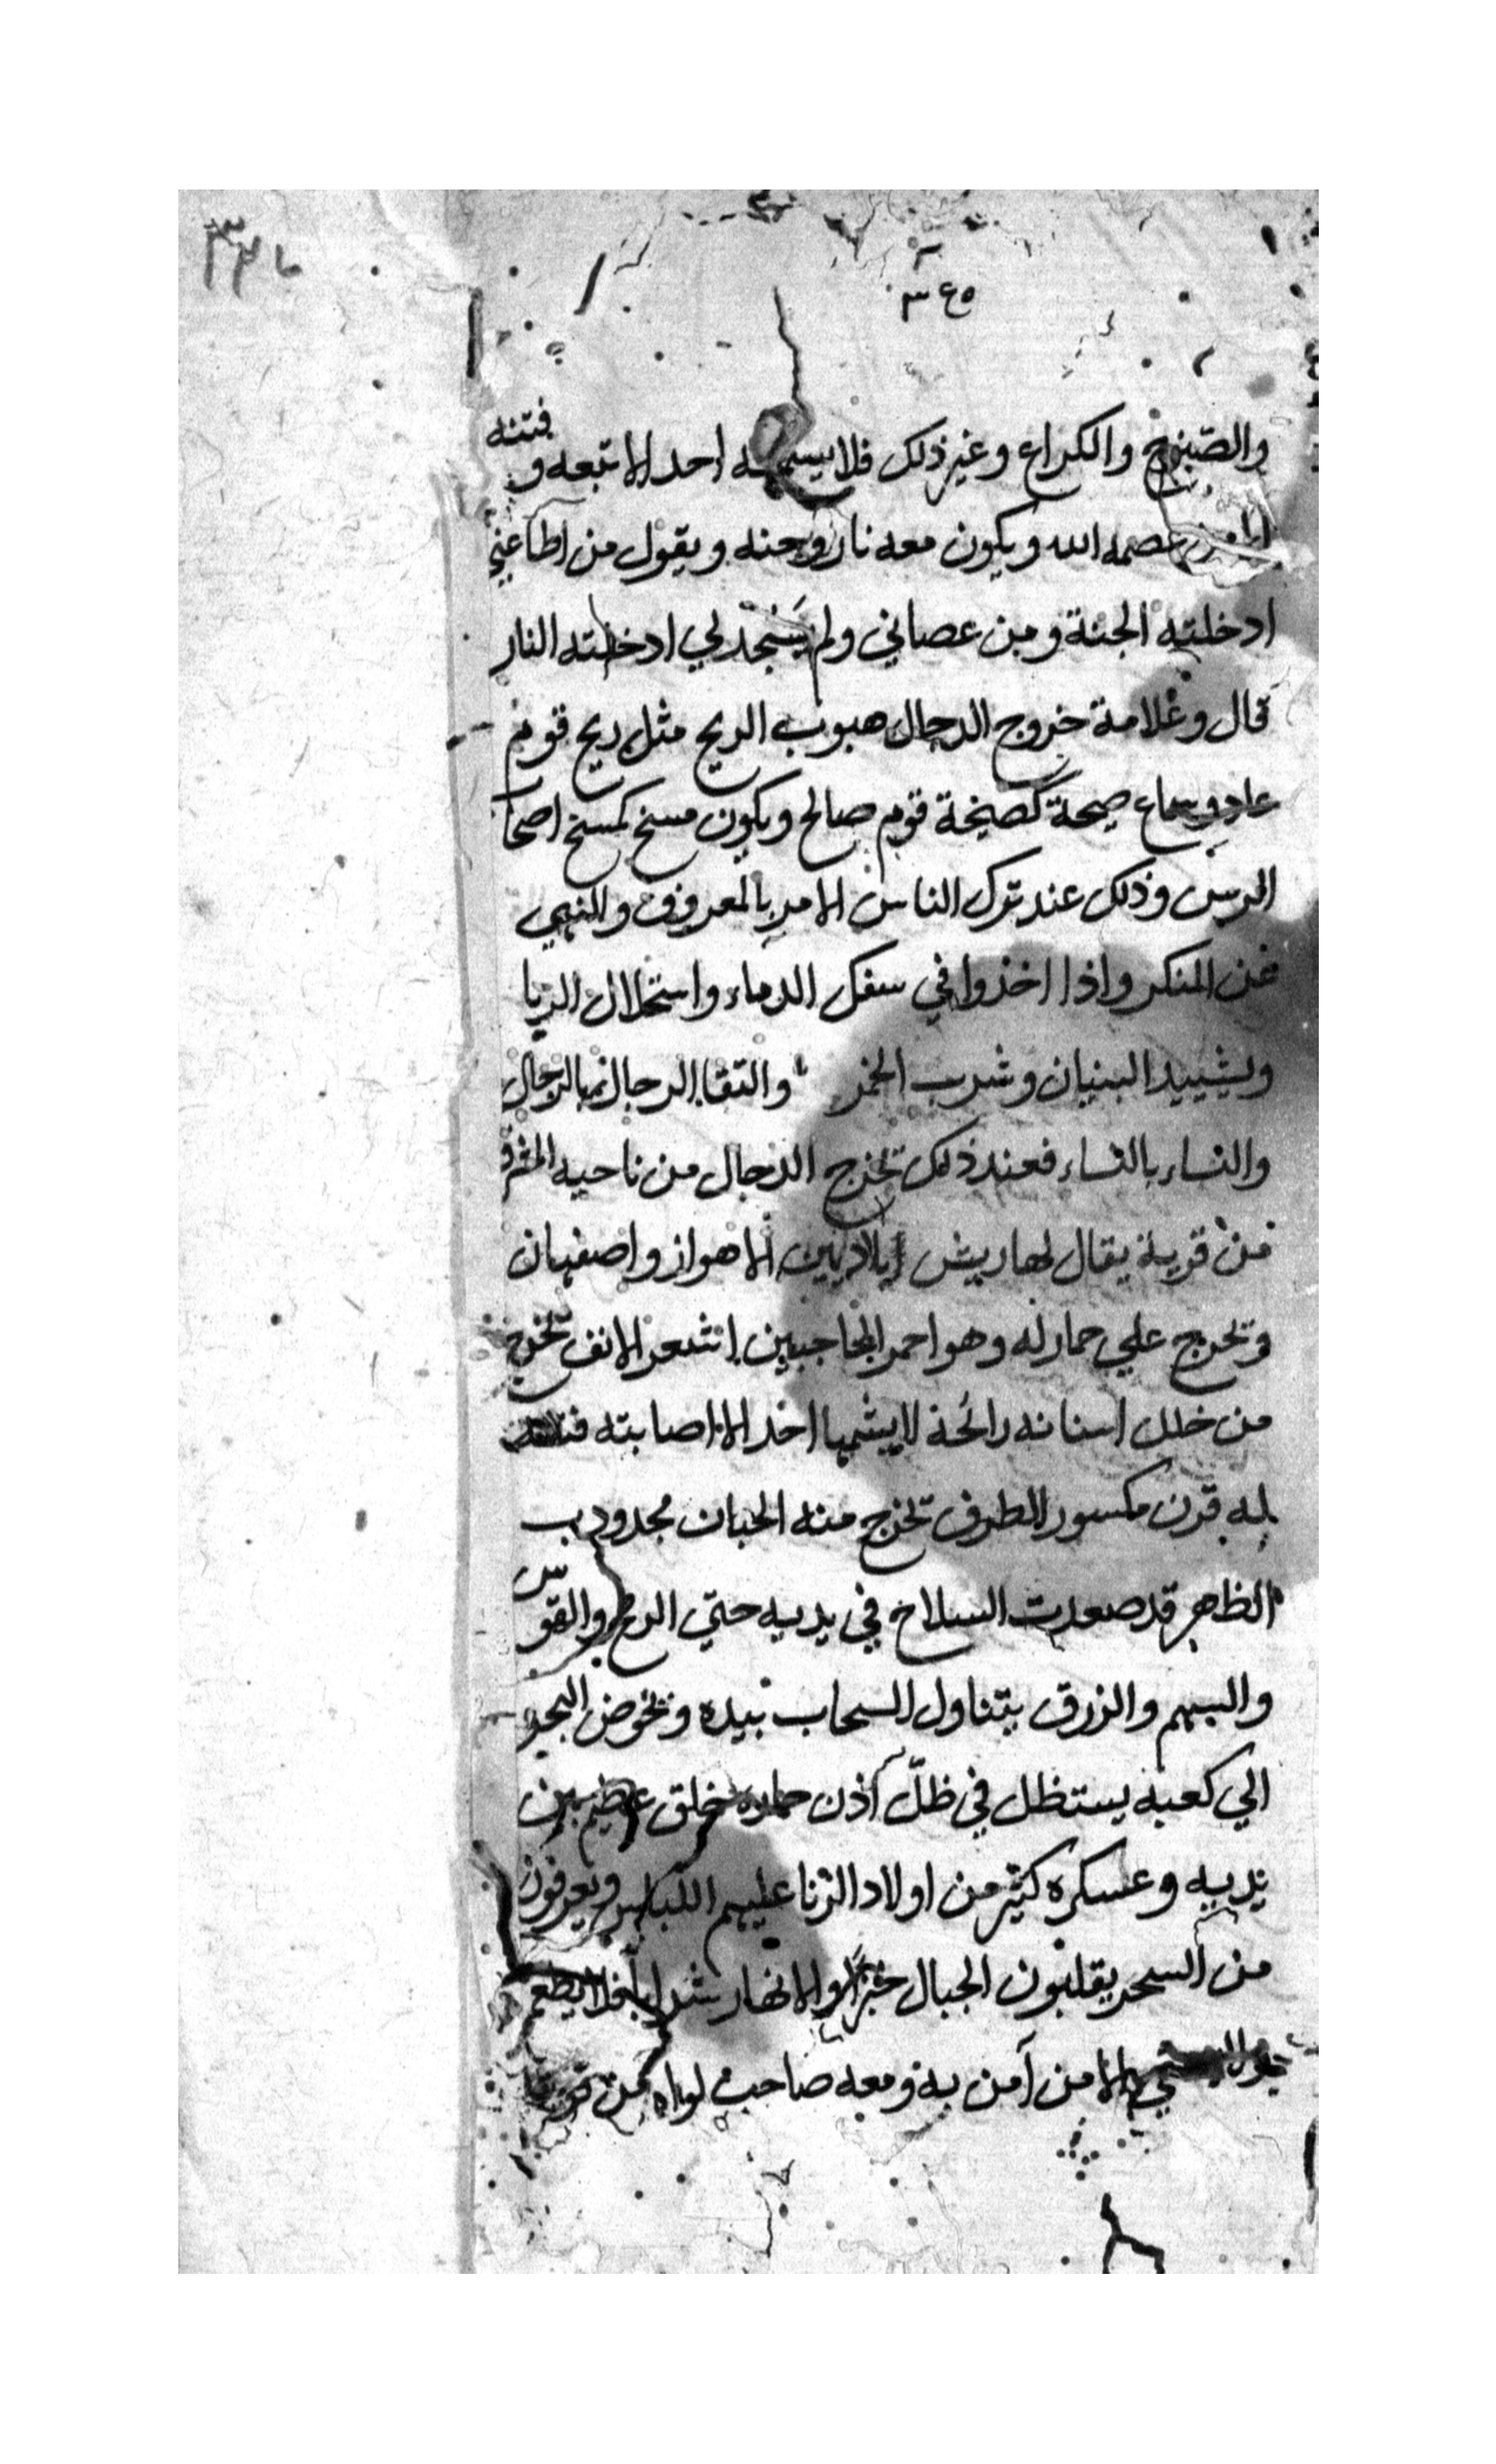 ٣٤٥
والصنوج والكراع وغير ذلك فلا يسمعه احد الا تبعه و فتنه
الا من عصمه الله ويكون معه نار وجنه ويقول من اطاعني
ادخلته الجنة ومن عصاني ولم يسجد لي ادخلته النار
قال وعلامة خروج الدجال هبوب الريح مثل ريح قوم
عاد وسماع صيحة كصيحة قوم صالح ويكون مسخ كمسخ اصحا
الرس وذلك عند ترك الناس الامر بالمعروف والنهي
عن المنكر واذا اخذوا في سفك الدماء واستحلال الربا
وتشييد البنيان وشرب الخمر والتقا الرجال بالرجال
والنساء بالنساء فعند ذلك تخرج الدجال من ناحيه المشرق
من قرية يقال لها ريش بين الاهواز واصفهان
وتخرج علي حمار له وهو احمر الحاجبين اشعر الانف تخرج
من خلل اسنانه رائحة لا يشمها احد الا اصابته
له قرن مكسور الطرف تخرج منه الحيات محدودب
الظاهر قد صعدت السلاح في يديه حتي الرمح والقوس
والسهم والزرق يتناول السحاب بيده وتخوض البحر
الي كعبه يستظل في ظلّ أذن حماره خلق عظيم بين
يديه وعسكره كثير من اولاد الزنا عليهم اللباس ويعرفون
من السحر يقلبون الجبال خبزاً والانهار شراباً فلا يطعم
الا من آمن به ومعه صاحب لواه من